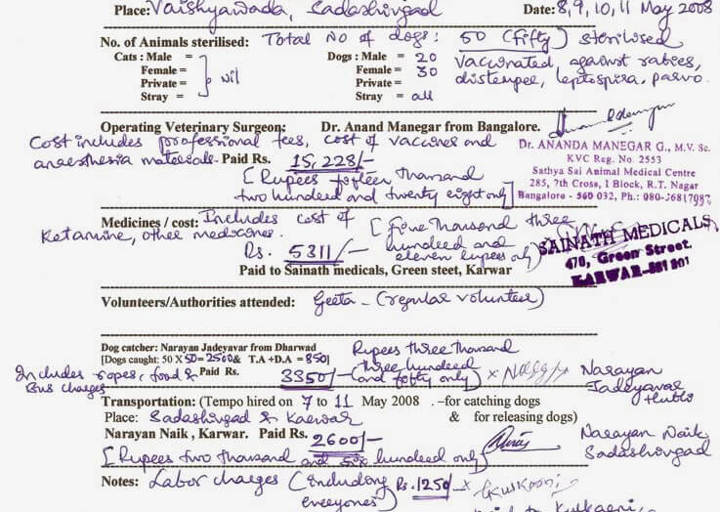 Place: Vaishyawada, Sadashivgad Date: 8, 9, 10, 11 May 2008
No. of Animals sterilised: Total No of dogs: 50 (fifty) sterilised
Cats : Male = Dogs : Male = 20 Vaccinated, against rabies,
Female = Female = 30 distemper, leptospira, parvo.
Private = nil Private =
Stray = Stray = all
Operating Veterinary Surgeon: Dr. Anand Manegar from Bangalore.
Cost includes professional fees, cost of vaccines and
anaesthesia materials. Paid Rs. 15,228/-
[Rupees fifteen thousand
two hundred and twenty eight only]
Dr. ANANDA MANEGAR G., M.V. Sc.
KVC Reg. No. 2553
Sathya Sai Animal Medical Centre
285, 7th Cross, 1 Block, R.T. Nagar
Bangalore - 560 032, Ph.: 080-36817987
Medicines / cost: Includes cost of [five thousand three
Ketamine, other medicines. hundred and
Rs. 5311/- eleven rupees only)
SAINATH MEDICALS
470, Green Street.
KARWAR-581 301
Paid to Sainath medicals, Green steet, Karwar
Volunteers/Authorities attended: Geeta - (regular volunteer)
Dog catcher: Narayan Jadeyavar from Dharwad Rupees three thousand
[Dogs caught: 50 X 50 = 2500 & T.A +D.A = 850] (three hundred
Includes ropes, food & Paid Rs. 3350/- and fifty only) x Narayan
Bus charges Jadeyavar
Hubli
Transportation: (Tempo hired on 7 to 11 May 2008 .–for catching dogs
Place: Sadashivgad & Karwar & for releasing dogs)
Narayan Naik , Karwar. Paid Rs. 2600/- Narayan Naik
[Rupees two thousand and six hundred only] Sadashivgad
Notes: Labor charges (including Rs. 1250/- x
everyones)
paid to Kulkarni,